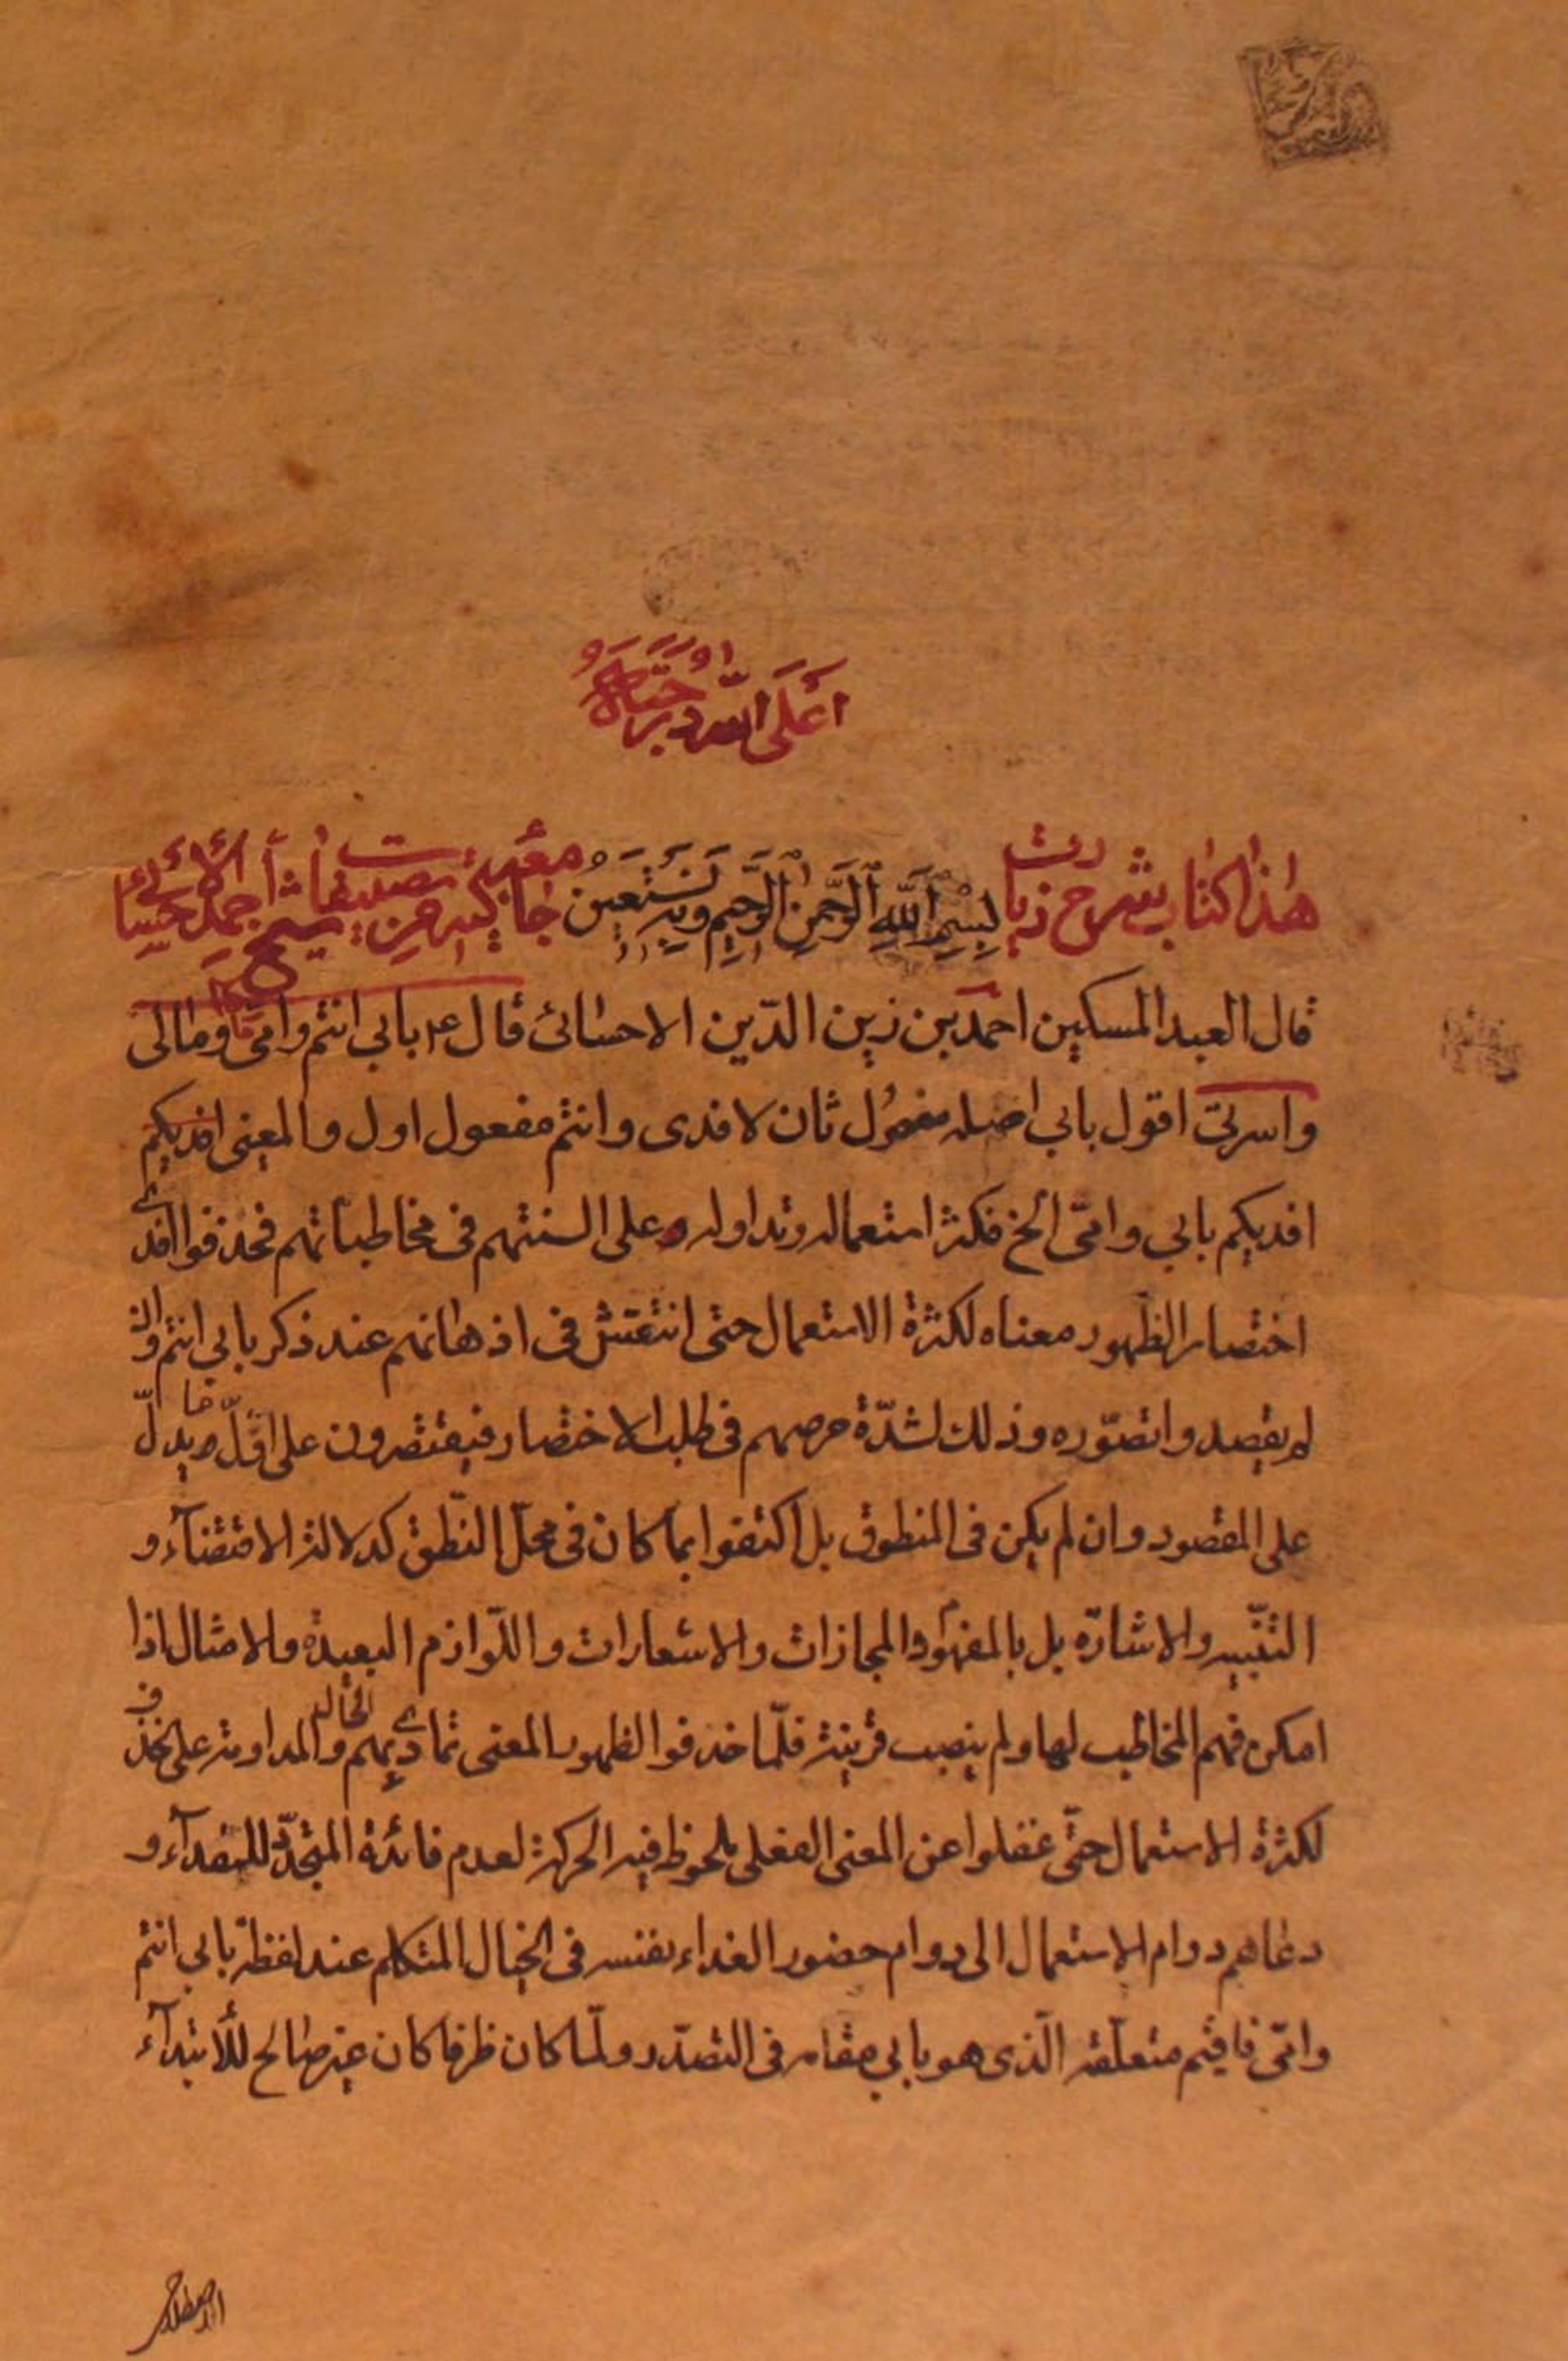 اعلى الله درجته
هذا كتاب شرح زيارت بسم الله الرحمن الرحيم وبه نستعين جامعه كبيره من تصنيفات شيخ احمد الاحسائي
قال العبد المسكين احمد بن زين الدّين الاحسائى قال ع بابي انتم وامى ومالى
واسرتى اقول بابي اصله مفعول ثان لا فدى وانتم مفعول اول والمعنى افديكم
افديكم بابي وامّى الخ فكثر استعماله وتداوله على السنتهم فى مخاطباتهم فحذفوا افدى
اختصار الظهور معناه لكثرة الاستعمال حتى انتقش فى اذهانهم عند ذكر بابي انتم وان
لم يقصد واتصوّره وذلك لشدّة حرصهم فى طلب الاختصار فيقتصرون على اقلّ ما يدلّ
على المقصود وان لم يكن فى المنطوق بل اكتفوا بما كان فى محلّ النّطق كدلالة الاقتضآء و
التنّبيه والاشارة بل بالمفهوم والمجازات والاستعارات واللّوازم البعيدة والامثال اذا
امكن فهم المخاطب لها ولم ينصب قرينة فلمّا حذفوا لظهور المعنى تمادى بهم الحال والمداومة على الحذف
لكثرة الاستعمال حتّى غفلوا عن المعنى الفعلى يلحوظ فيه الحركة لعدم فائدة المتجدّد للفدآء و
دعاهم دوام الاستعمال الى دوام حضور الفداء بنفسه فى الخيال المتكلم عند لفظة بابي انتم
وامّى فاقيم متعلّقه الّذى هو بابي مقامه فى التصدّر ولمّا كان ظرفا كان غير صالح للابتدآء